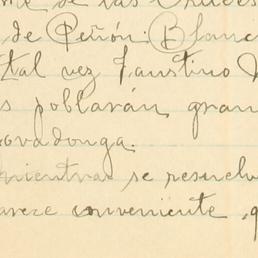 de las Cruces
de Peñón Blanc
tal vez Faustino
s poblarán gran
ovadonga.
mientras se resuelv
arece conveniente, q